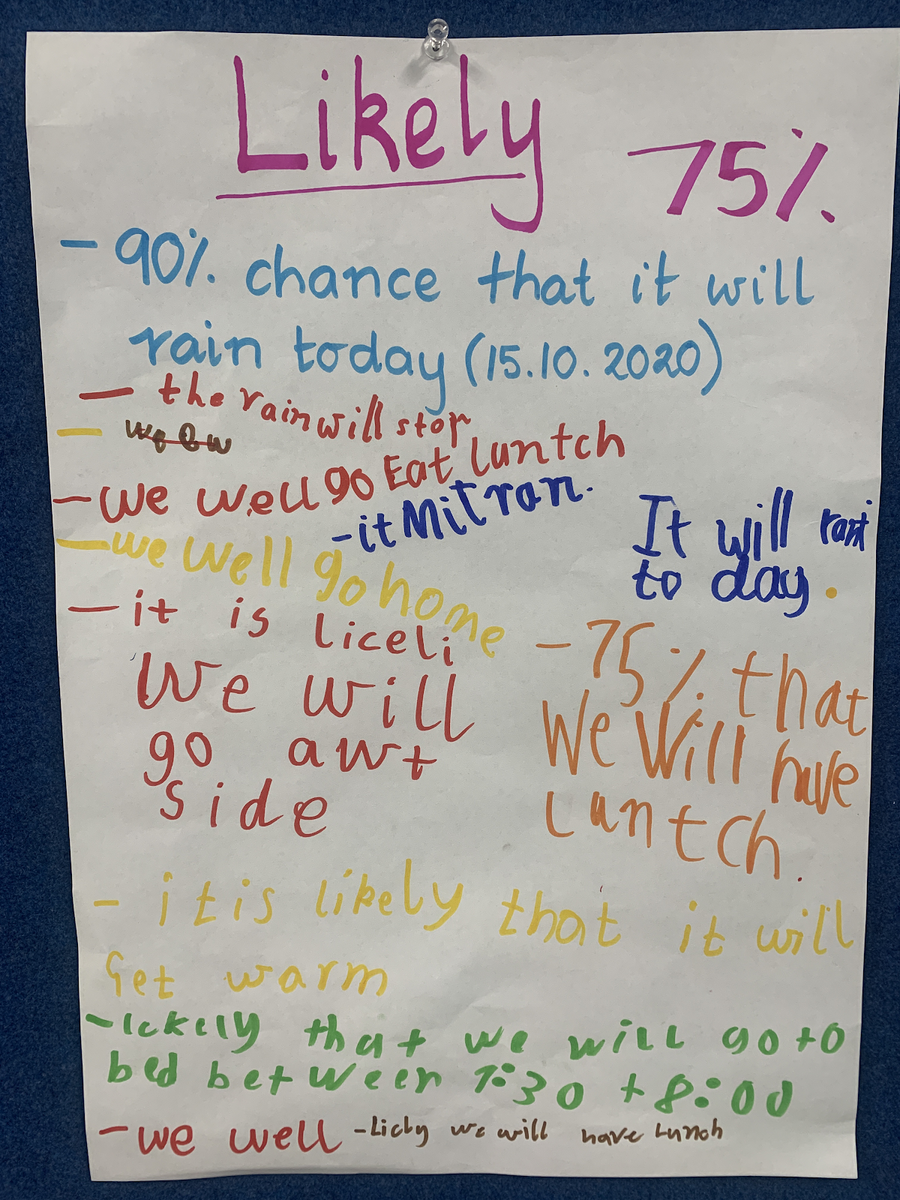 Likely 75%
- 90% chance that it will
rain today (15.10.2020)
- the rain will stop
-
- we well go Eat luntch
- it Mit ran.
It will
to day.
- we well go home
- it is liceli
We will
go awt
side
- 75% that
We Will have
Luntch.
- it is likely that it will
Get warm
- Ickely that we will go to
bed between 7:30 + 8:00
- we well
- Licly we will have lunch